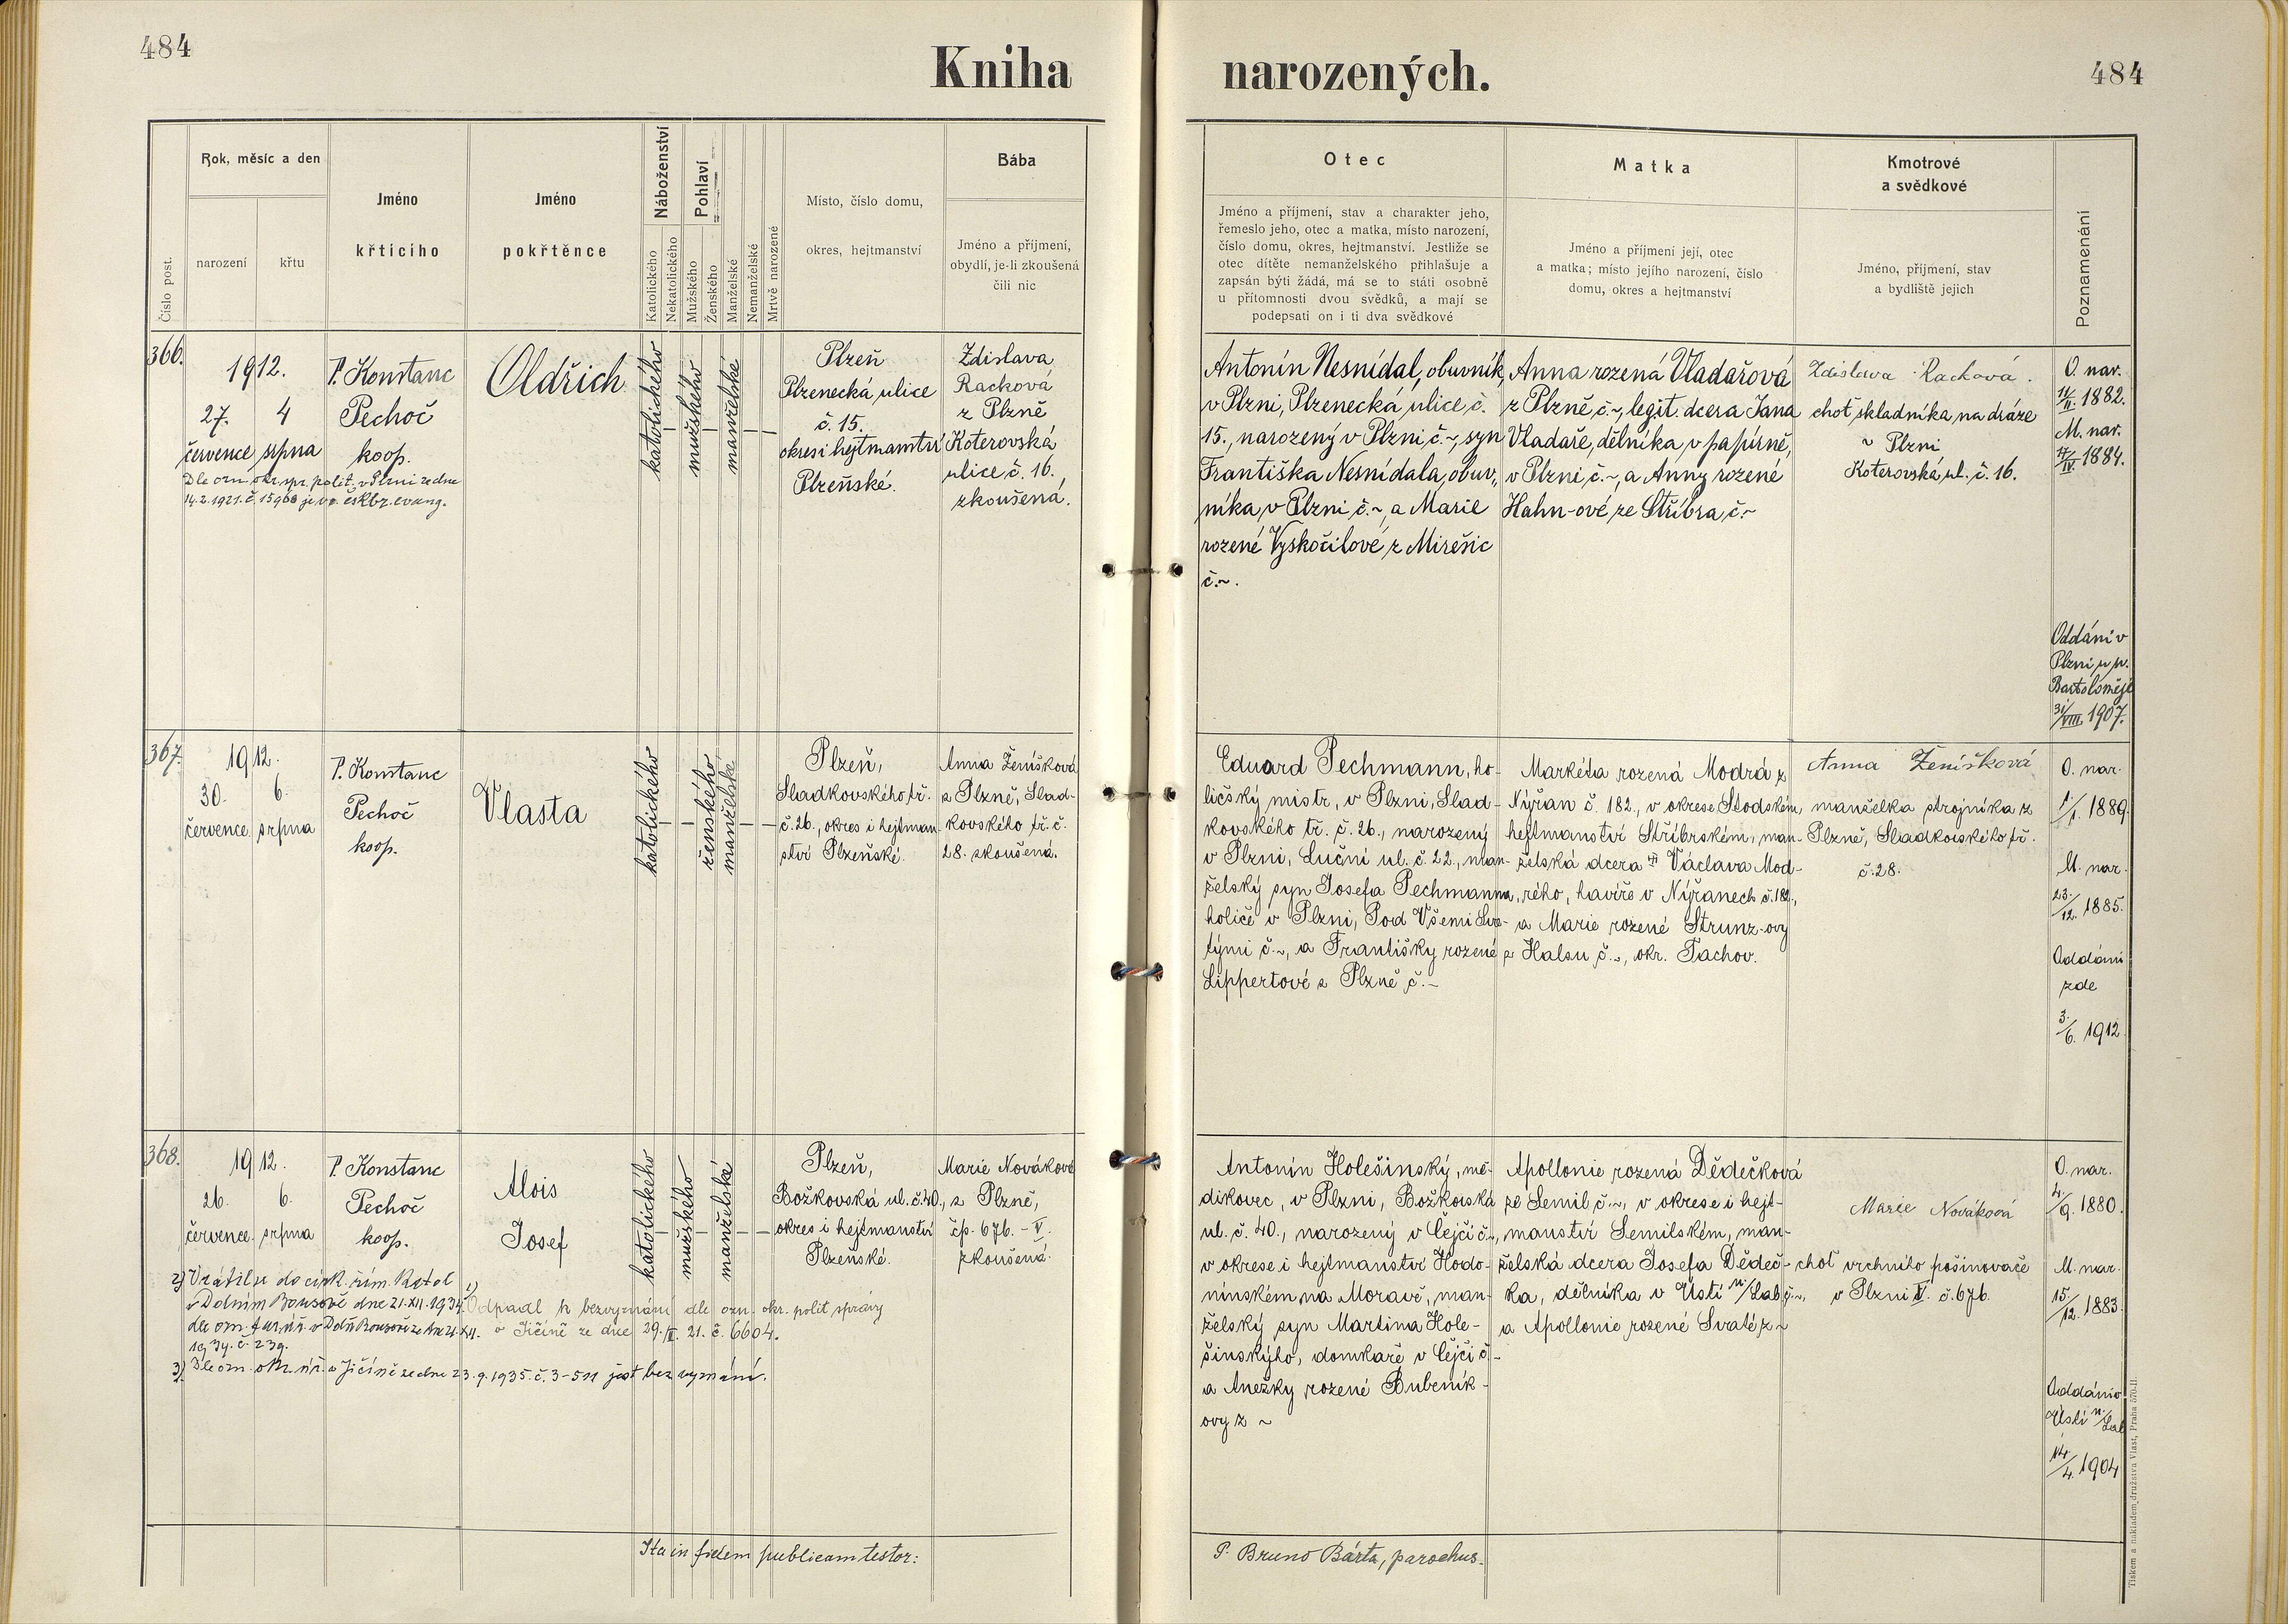 484
Kniha narozených.
484
Číslo post.
Rok, měsíc a den
narození
křtu
Jméno
křticího
Jméno
pokřtěnce
Náboženství
Katolického
Nekatolického
Pohlaví
Mužského
Ženského
Manželské
Nemanželské
Mrtvě narozené
Místo, číslo domu,
okres, hejtmanství
Bába
Jméno a příjmení,
obydlí, je-li zkoušená
čili nic
Otec
Jméno a příjmení, stav a charakter jeho,
řemeslo jeho, otec a matka, místo narození,
číslo domu, okres, hejtmanství. Jestliže se
otec dítěte nemanželského přihlašuje a
zapsán býti žádá, má se to státi osobně
u přítomnosti dvou svědků, a mají se
podepsati on i ti dva svědkové
Matka
Jméno a příjmení její, otec
a matka; místo jejího narození, číslo
domu, okres a hejtmanství
Kmotrové
a svědkové
Jméno, příjmení, stav
a bydliště jejich
Poznamenání
366.
1912.
27. 4
července srpna
Dle ozn. okr. spr. polit. v Plzni ze dne
14.2.1921. č. 15968 je v c. českbr. evang.
P. Konstanc
Pechoč
koop.
Oldřich
katolického
mužského
manželské
Plzeň
Plzenecká ulice
č. 15.
okres i hejtmanství
Plzeňské.
Zdislava
Racková
z Plzně
Koterovská
ulice č. 16.,
zkoušená.
Antonín Nesnídal, obuvník,
v Plzni, Plzenecká ulice č.
15., narozený v Plzni č.~, syn
Františka Nesnídala, obuv-
níka, v Plzni č.~, a Marie
rozené Vyskočilové z Mirešic
č.~.
Anna rozená Vladařová
z Plzně č.~, legit. dcera Jana
Vladaře, dělníka v papírně,
v Plzni č.~, a Anny rozené
Hahn-ové ze Stříbra, č.~
Zdislava Racková.
choť skladníka na dráze
v Plzni
Koterovská ul. č. 16.
O. nar.
1882.
M. nar.
1884.
Oddáni v
Plzni u sv.
Bartoloměje
31/VIII. 1907.
367.
1912.
30. 6.
července srpna
P. Konstanc
Pechoč
koop.
Vlasta
katolického
ženského
manželské
Plzeň,
Sladkovského tř.
č. 26., okres i hejtman-
ství Plzeňské.
Anna Ženíšková
z Plzně, Slad-
kovského tř. č.
28. zkoušená.
Eduard Pechmann, ho-
ličský mistr, v Plzni, Slad-
kovského tř. č. 26., narozený
v Plzni, Luční ul. č. 22., man-
želský syn Josefa Pechmanna,
holiče v Plzni, Pod Všemi Sva-
tými č.~, a Františky rozené
Lippertové z Plzně č.–
Markéta rozená Modrá z
Nýřan č. 182., v okrese Stodském,
hejtmanství Stříbrském, man-
želská dcera Václava Mod-
rého, havíře v Nýřanech č. 182.,
a Marie rozené Strunz-ovy
z Halsu č.~, okr. Tachov.
Anna Ženíšková
manželka strojníka z
Plzně, Sladkovského tř.
č. 28.
O. nar.
1/1. 1889.
M. nar.
23./12. 1885.
Oddáni
zde
3./6. 1912.
368.
1912.
26. 6.
července srpna
P. Konstanc
Pechoč
koop.
Alois
Josef
katolického
mužského
manželské
Plzeň,
Božkovská ul. č. 40.,
okres i hejtmanství
Plzeňské.
Marie Nováková
z Plzně,
čp. 676. – V.
zkoušená.
2) Vrátil se do círk. řím. katol.
v Dolním Bousově dne 21.XII.1934.
dle ozn. far. úř. v Doln. Bousově ze dne 21.XII.
1934. č. 239.
1) Odpadl k bezvyznání dle ozn. okr. polit správy
v Jičíně ze dne 29./II. 21. č. 6604.
3) Dle ozn. okr. úř. v Jičíně ze dne 23.9.1935. č. 3-511 jest bez vyznání.
Antonín Holešinský, mě-
dikovec, v Plzni, Božkovská
ul. č. 40., narozený v Čejči č.~,
v okrese i hejtmanství Hodo-
nínském na Moravě, man-
želský syn Martina Hole-
šinskýho, domkaře v Čejči č.–
a Anežky rozené Bubeník-
ovy z ~
Apollonie rozená Dědečková
ze Semil č.~, v okrese i hejt-
manství Semilském, man-
želská dcera Josefa Dědeč-
ka, dělníka v Ústí n./Lab. č.~,
a Apollonie rozené Svaté z ~
Marie Nováková
choť vrchního pošinovače
v Plzni V. č. 676.
O. nar.
4/9. 1880.
M. nar.
15./12. 1883.
Oddáni v
Ústí n./Lab
14/4. 1904
Ita in fidem publicam testor:
P. Bruno Bárta, parochus.
Tiskem a nakladem družstva Vlast, Praha 570-II.